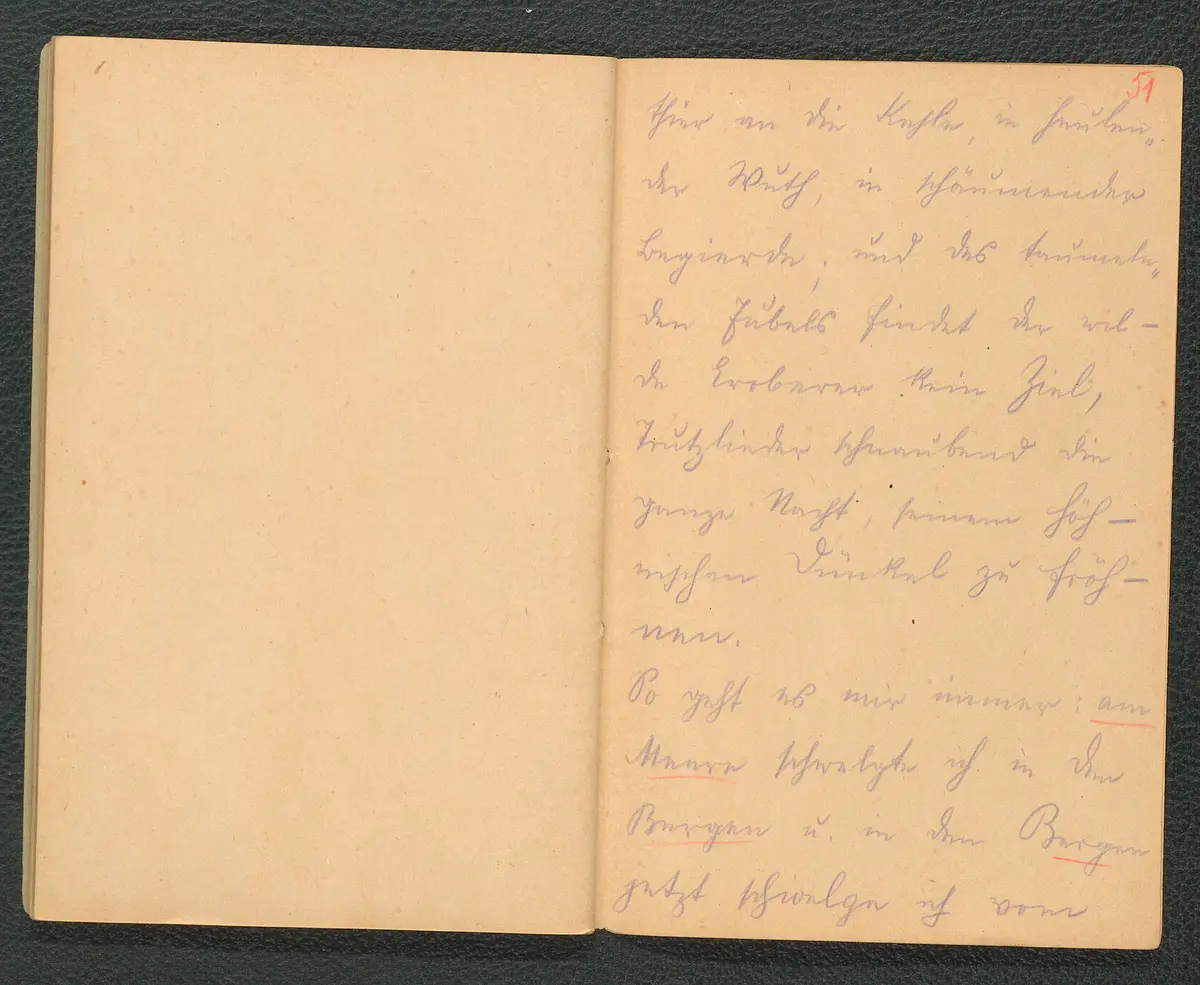 51
thier an die Kehle, in heulen„
der Wuth, in schäumender
Begierde, und des taumeln„
den Jubels findet der wil-
de Eroberer kein Ziel,
Trutzlieder schnaubend die
ganze Nacht, seinem höh-
nischen Dünkel zu fröh-
nen.
So geht es mir immer: am
Meere schwelgte ich in den
Bergen u. in den Bergen
jetzt schwelge ich vom